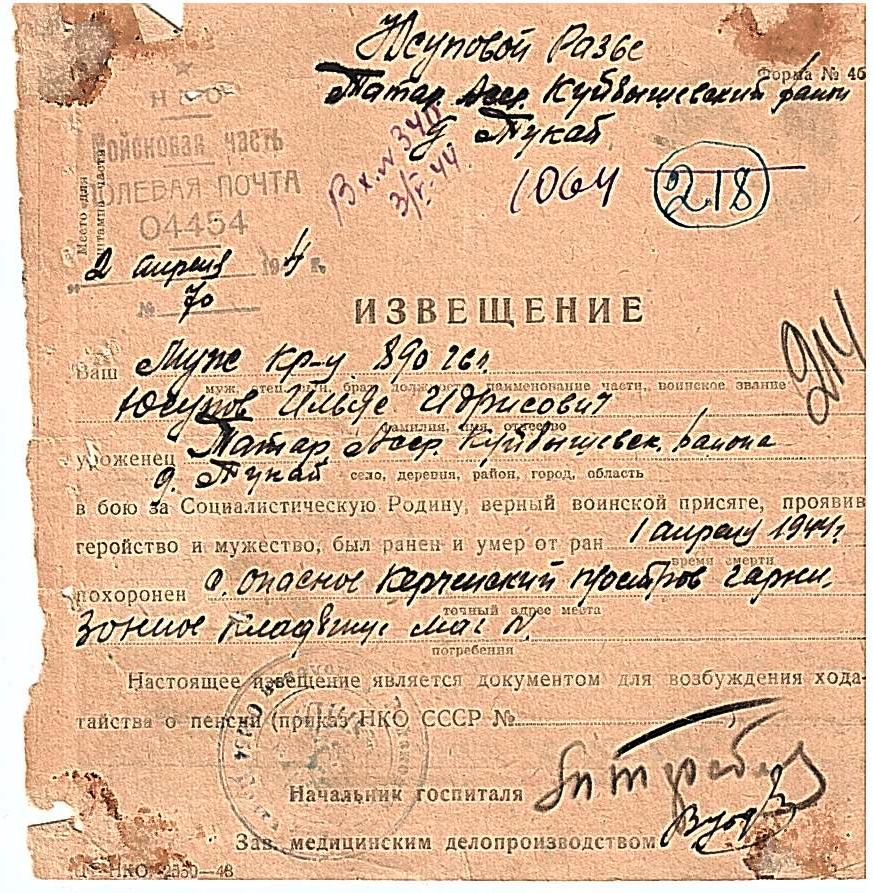 Юсуповой Разье
Форма № 46
Татар Асср. Куйбышевский район
д Тукай
НКО
Войсковая часть
ПОЛЕВАЯ ПОЧТА
04454
Место для
штампа части
Вх. № 340
3/V-44
1064 218
„2 апреля 194 4 г.
№ 70
ИЗВЕЩЕНИЕ
214
Ваш Муж кр-ц. 890
муж, отец, сын, брат, должность, наименование части, воинское звание
Юсупов Ильяс Идрисович
фамилия, имя, отчество
уроженец Татар Асср. Куйбышевск. района
д. Тукай
село, деревня, район, город, область
в бою за Социалистическую Родину, верный воинской присяге, проявив
геройство и мужество, был ранен и умер от ран 1 апреля 1944г.
время смерти
похоронен с. Опасное Керченский гарни-
точный адрес места
зонное кладбище
погребения
Настоящее извещение является документом для возбуждения хода-
тайства о пенсии (приказ НКО СССР № )
Начальник госпиталя
Зав. медицинским делопроизводством